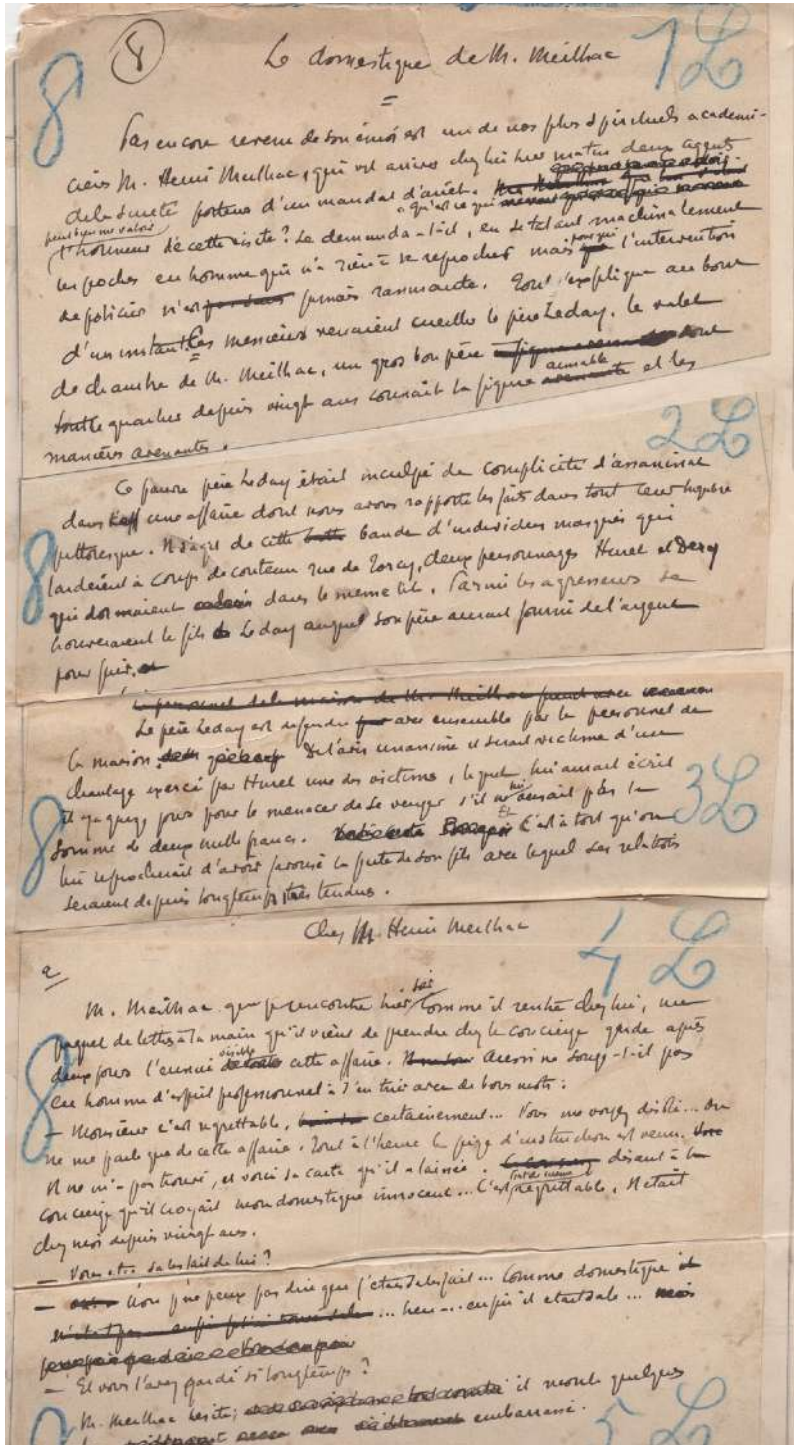 8
8
Le domestique de M. Meilhac
1L
Pas encore revenu de son émoi est un de nos plus spirituels académi-
ciens M. Henri Meilhac, qui vit arriver chez lui hier matin deux agents
de la Sureté porteurs d'un mandat d'arrêt.
peut bien me valoir
"Qu'est ce qui
l'honneur de cette visite? Se demanda-t-il, en se tatant machinalement
les poches en homme qui n'a rien à se reprocher mais pour qui l'intervention
de policier n'est jamais rassurante. Tout s'explique au bout
d'un instant. Ces messieurs venaient cueillir le père Leday, le valet
de chambre de M. Meilhac, un gros bon père dont
tout le quartier depuis vingt ans connait la figure aimable et les
manières avenantes.
2L
Ce pauvre père Leday était inculpé de complicité d'assassinat
dans une affaire dont nous avons rapporté les faits dans tout leur lugubre
pittoresque. Il s'agit de cette bande d'individus masqués qui
8
lardèrent à coups de couteau rue de Torcy, deux personnages Hurel et Dercy
qui dormaient dans le meme lit. Parmi les agresseurs se
trouveraient le fils Leday auquel son père aurait fourni de l'argent
pour fuir.
Le personnel de la maison de M. Meilhac prend avec
Le père Leday est défendu avec ensemble par le personnel de
la maison. De l'avis unanime il serait victime d'un
chantage exercé par Hurel une des victimes, lequel lui aurait écrit
il y a quelques jours pour le menacer de se venger s'il ne lui versait pas la
3L
8
somme de deux mille francs. Et c'est à tort qu'on
lui reprocherait d'avoir favorisé la fuite de son fils avec lequel ses relations
seraient depuis longtemps très tendues.
Chez M. Henri Meilhac
4L
M. Meilhac que je rencontre hier soir comme il rentre chez lui, un
paquet de lettres à la main qu'il vient de prendre chez le concierge garde après
8
deux jours l'ennui visible de cette affaire. Aussi ne songe-t-il pas
en homme d'esprit professionnel à s'en tirer avec de bons mots:
- Monsieur c'est regrettable, certainement... Vous me voyez désolé... On
ne me parle que de cette affaire. Tout à l'heure le juge d'instruction est venu.
Il ne m'a pas trouvé, et voici sa carte qu'il a laissée. disant à la
concierge qu'il croyait mon domestique innocent... C'est tout de même regrettable. Il était
chez moi depuis vingt ans.
- Vous etes satisfait de lui?
- Non je ne peux pas dire que j'étais satisfait... Comme domestique
... heu ... enfin il etait sale ...
- Et vous l'avez gardé si longtemps?
M. Meilhac hésite; il monte quelques
embarrassé.
5L